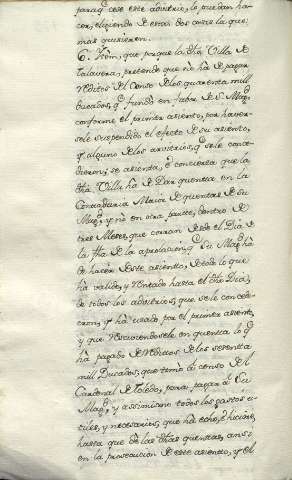 paraq̃ cese este advitrio, lo puedan ha-
cer, eligiendo de estas dos cosas la que
mas quisieren.
6. Ytòn, que porque la dħa Villa de
Talavera, pretende que no hà de pagar
réditos del Censo de los quarenta mill
Ducados, q̃ fundò en fabor de S. Mag.ᵈ
conforme el primer asiento, por haver-
sele suspendido el efecto de su asiento,
y alguno de los arvitrios, q̃ se le conce-
dieron; se asienta, è concierta que la
dħa Villa, hà de Dar quentta en la
Contaduría Maior de quentas de Su
Mag.ᵈ y nò en otra partte, dentro de
tres Meses, que corran desde el Dia de
la fħa de la aprobacion, q̃ Su Mag.ᵈ hà
de hacer de este asiento, de todo lo que
hà valido, y rentado hasta el dħo Dia,
de todos los advitrios, que se le conce-
dieron, y hà usado por el primer asiento,
y que reciviendosele en quentta lo q̃
hà pagado de réditos de los sesentta
mill Ducados, que tomò à censo del
Cardenal de Toledo, para pagar à Su
Mag.ᵈ, y assimismo todos los gastos u-
tiles, y necesarios, que hà echo, è hiciere,
hasta que dè las dħas quentas, ansi
en la prosecucion de este asiento, y el